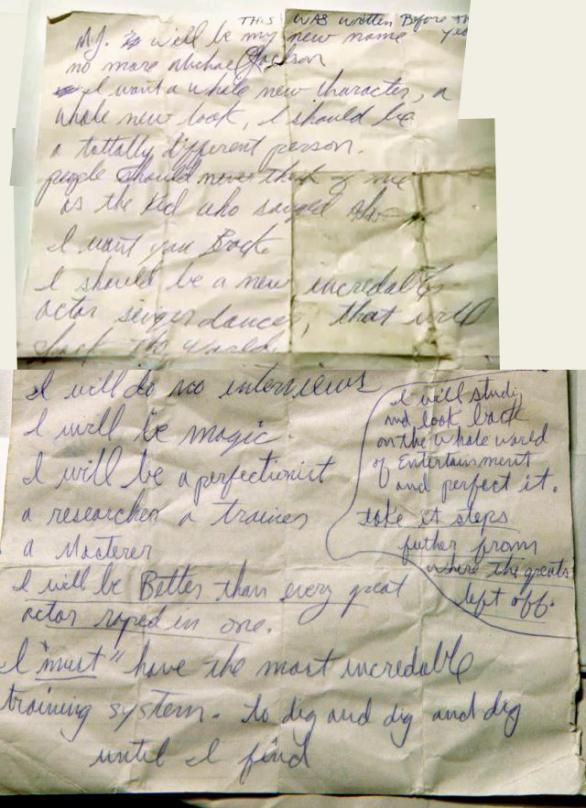 THIS WAS written Before
M.J. will be my new name
no more Michael Jackson
I want a whole new character, a
whole new look, I should be
a tottally different person.
people should never think of me
as the kid who sanged
I want you Back
I should be a new incredable
actor singer dancer, that will
I will do no interviews
I will be magic.
I will be a perfectionist
a researcher a trainer
a Masterer
I will be Better than every great
actor roped in one.
I "must" have the most incredable
training system. to dig and dig and dig
until I find
I will study
and look back
on the whole world
of Entertainment
and perfect it.
take it steps
futher from
where the greats
left off.